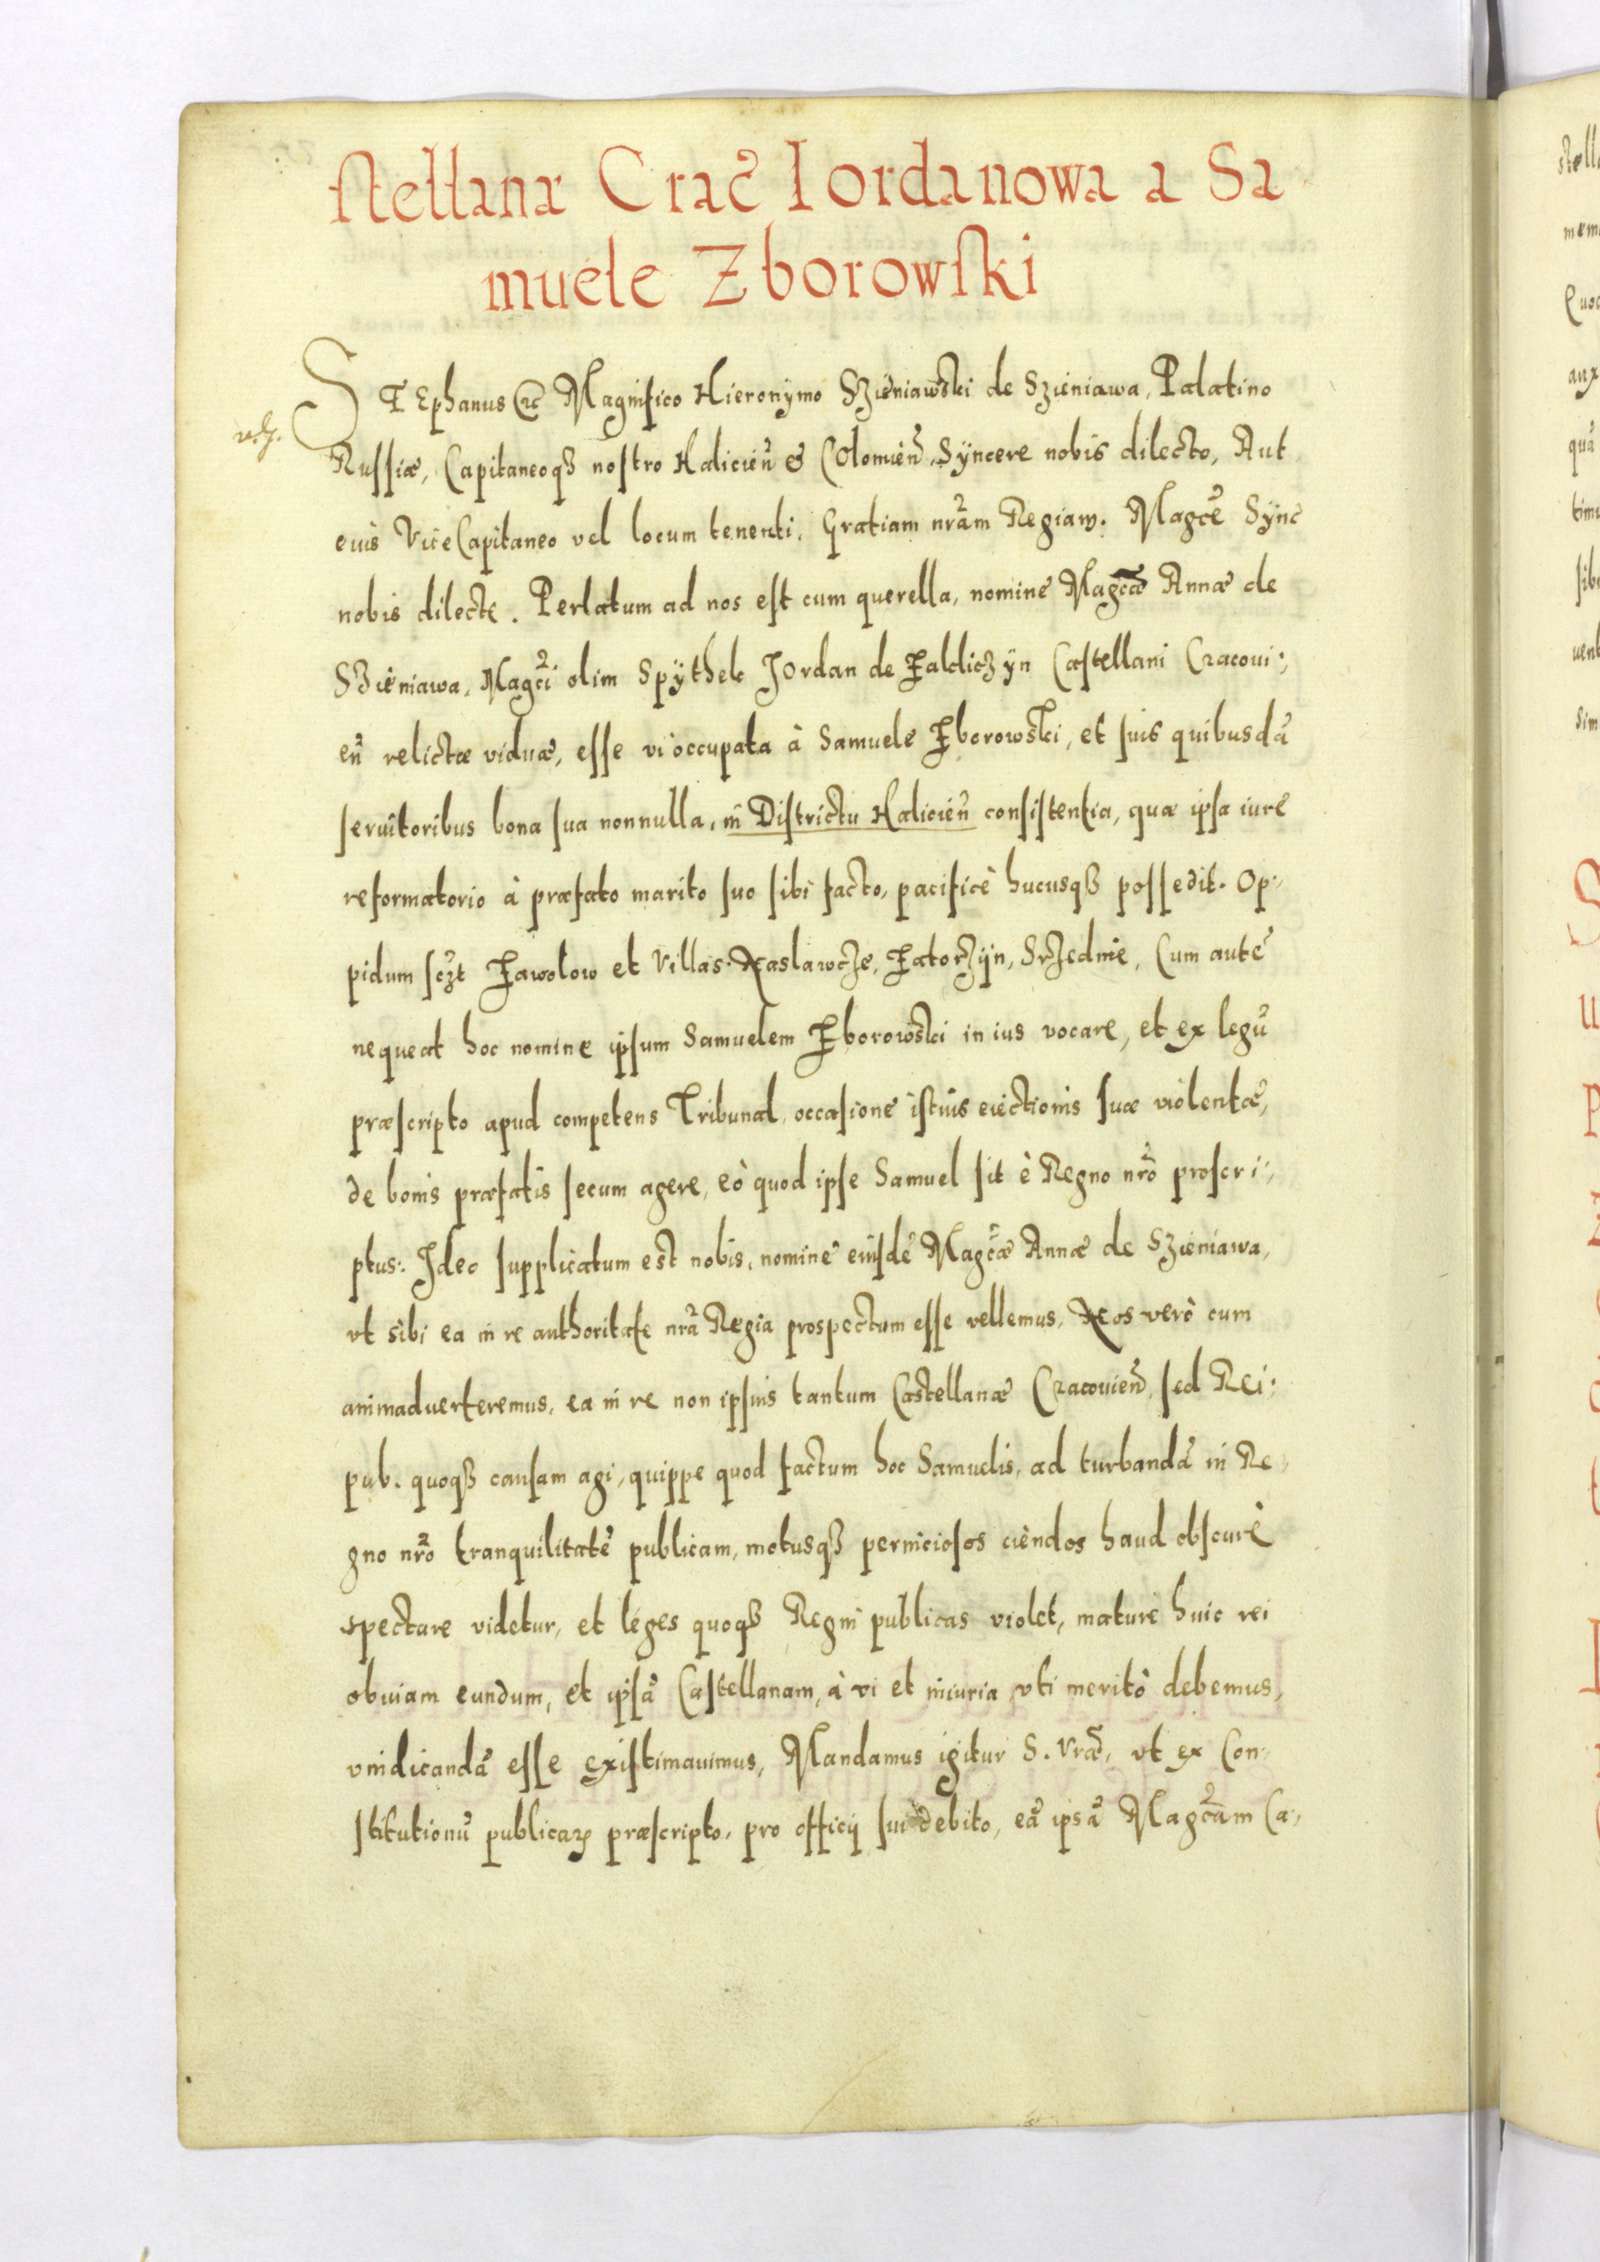 stellanæ Crac̃ Iordanowa a Sa
muele Zborowski
STEphanus etc Magnifico Hieronÿmo Szieniawski de Szieniawa, Palatino
Russiæ, Capitaneoqȝ nostro Halicień & Colomień, Sÿncere nobis dilecto, Aut
eius ViceCapitaneo vel locum tenenti, Gratiam nrãm Regiam. Magcẽ Sÿnc̃
nobis dilecte. Perlatum ad nos est cum querella, nomine Magcæ̃ Annæ de
Szieniawa, Magcĩ olim Spÿthek Jordan de Zakliczÿn Castellani Cracoui:,
eñ relictæ viduæ, esse vi occupata à Samuele Zborowski, et suis quibusdã
seruitoribus bona sua nonnulla, in Districtu Halicień consistentia, quæ ipsa iure
reformatorio à præfato marito suo sibi facto, pacificè hucusqȝ possedit. Op:,
pidum sczt Zawolow et Villas. Naslawcze, Zatorzÿn, Srzednie, Cum autẽ
nequeat hoc nomine ipsum Samuelem Zborowski in ius vocare, et ex legũ
præscripto apud competens Tribunal, occasione istius eiectionis suæ violentæ,
de bonis præfatis secum agere, eò quod ipse Samuel sit è Regno nrõ proscri:,
ptus: Ideo supplicatum est nobis, nomine eiusdẽ Magcæ̃ Annæ de Szieniawa,
vt sibi ea in re authoritate nrã Regia prospectum esse vellemus, Nos verò cum
animaduerteremus, ea in re non ipsius tantum Castellanæ Cracouień, sed Rei:
pub. quoqȝ causam agi, quippe quod factum hoc Samuelis, ad turbandã in Re,
gno nrõ tranquilitatẽ publicam, motusqȝ perniciosos ciendos haud obscurè
spectare videtur, et leges quoqȝ Regni publicas violet, maturè huic rei
obuiam eundum, et ipsã Castellanam, à vi et iniuria vti meritò debemus,
vindicandã esse existimauimus, Mandamus igitur S. Vræ̃, vt ex Con:
stitutionũ publicaꝝ præscripto, pro officij sui debito, eã ipsã Magcãm Ca:,